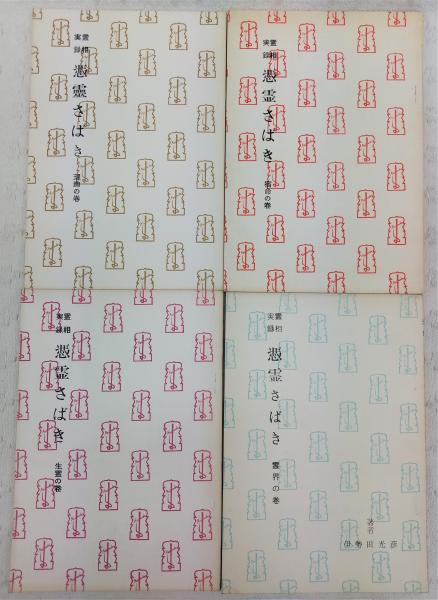 霊相
実録
憑靈さばき
理由の巻
霊相
実録
憑霊さばき
宿命の巻
霊相
実録
憑霊さばき
生霊の巻
霊相
実録
憑霊さばき
霊界の巻
著者
伊勢田光彦